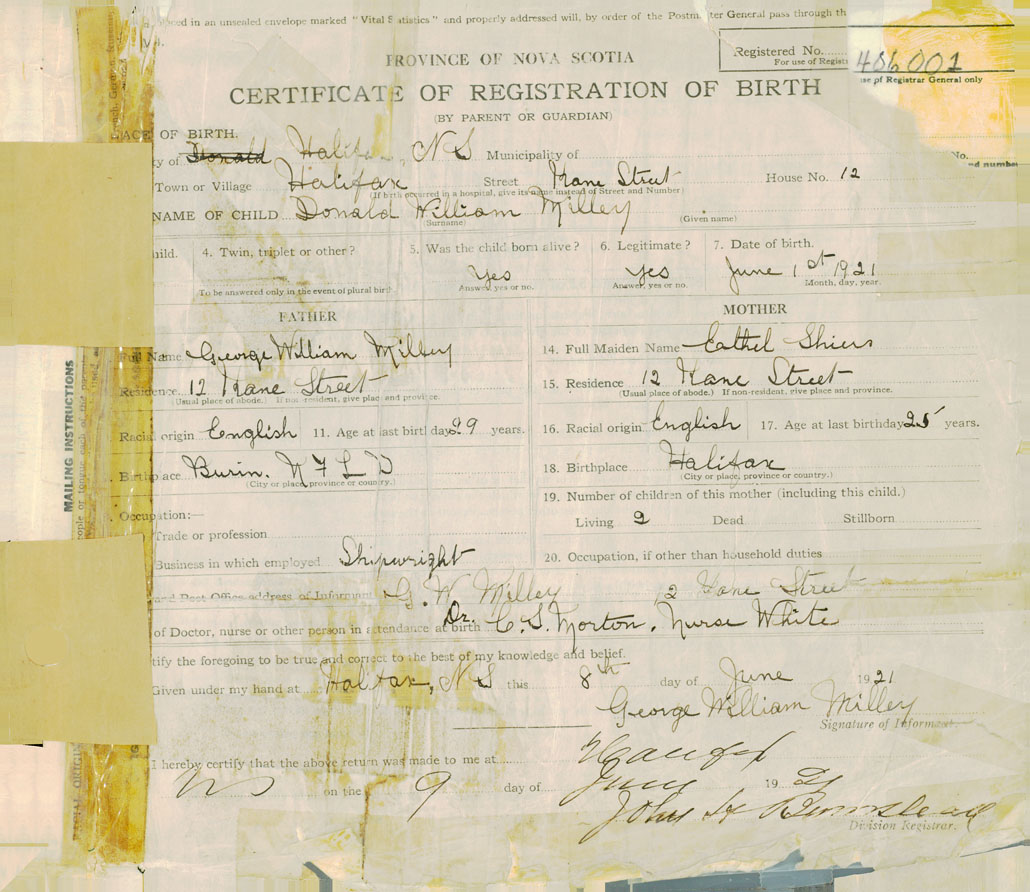 placed in an unsealed envelope marked "Vital Statistics" and properly addressed will, by order of the Postmaster General pass through th
PROVINCE OF NOVA SCOTIA
Registered No.
For use of Registr
486001
use of Registrar General only
CERTIFICATE OF REGISTRATION OF BIRTH
(BY PARENT OR GUARDIAN)
ACE OF BIRTH.
ty of Donald Halifax, NS Municipality of
No.
d number
Town or Village Halifax Street Kane Street House No. 12
(If birth occurred in a hospital, give its name instead of Street and Number)
NAME OF CHILD Donald William Milley
(Surname) (Given name)
hild. 4. Twin, triplet or other? 5. Was the child born alive? 6. Legitimate? 7. Date of birth.
Yes Yes June 1st 1921
To be answered only in the event of plural birth Answer, yes or no. Answer, yes or no. Month, day, year.
FATHER MOTHER
Full Name George William Milley 14. Full Maiden Name Eathel Shiers
Residence 12 Kane Street 15. Residence 12 Kane Street
(Usual place of abode.) If non-resident, give place and province. (Usual place of abode.) If non-resident, give place and province.
Racial origin English 11. Age at last birthday 29 years. 16. Racial origin English 17. Age at last birthday 25 years.
Birthplace Burin. NFLD 18. Birthplace Halifax
(City or place, province or country.) (City or place, province or country.)
19. Number of children of this mother (including this child.)
Occupation:— Living 2 Dead Stillborn
Trade or profession
Business in which employed Shipwright 20. Occupation, if other than household duties
and Post Office address of Informant G. W. Milley 12 Kane Street
of Doctor, nurse or other person in attendance at birth Dr. C. S. Morton. Nurse White
tify the foregoing to be true and correct to the best of my knowledge and belief.
Given under my hand at Halifax, NS this 8th day of June 1921
George William Milley
Signature of Informant.
I hereby certify that the above return was made to me at Halifax
NS on the 9 day of June 1921
John H
Division Registrar.
MAILING INSTRUCTIONS